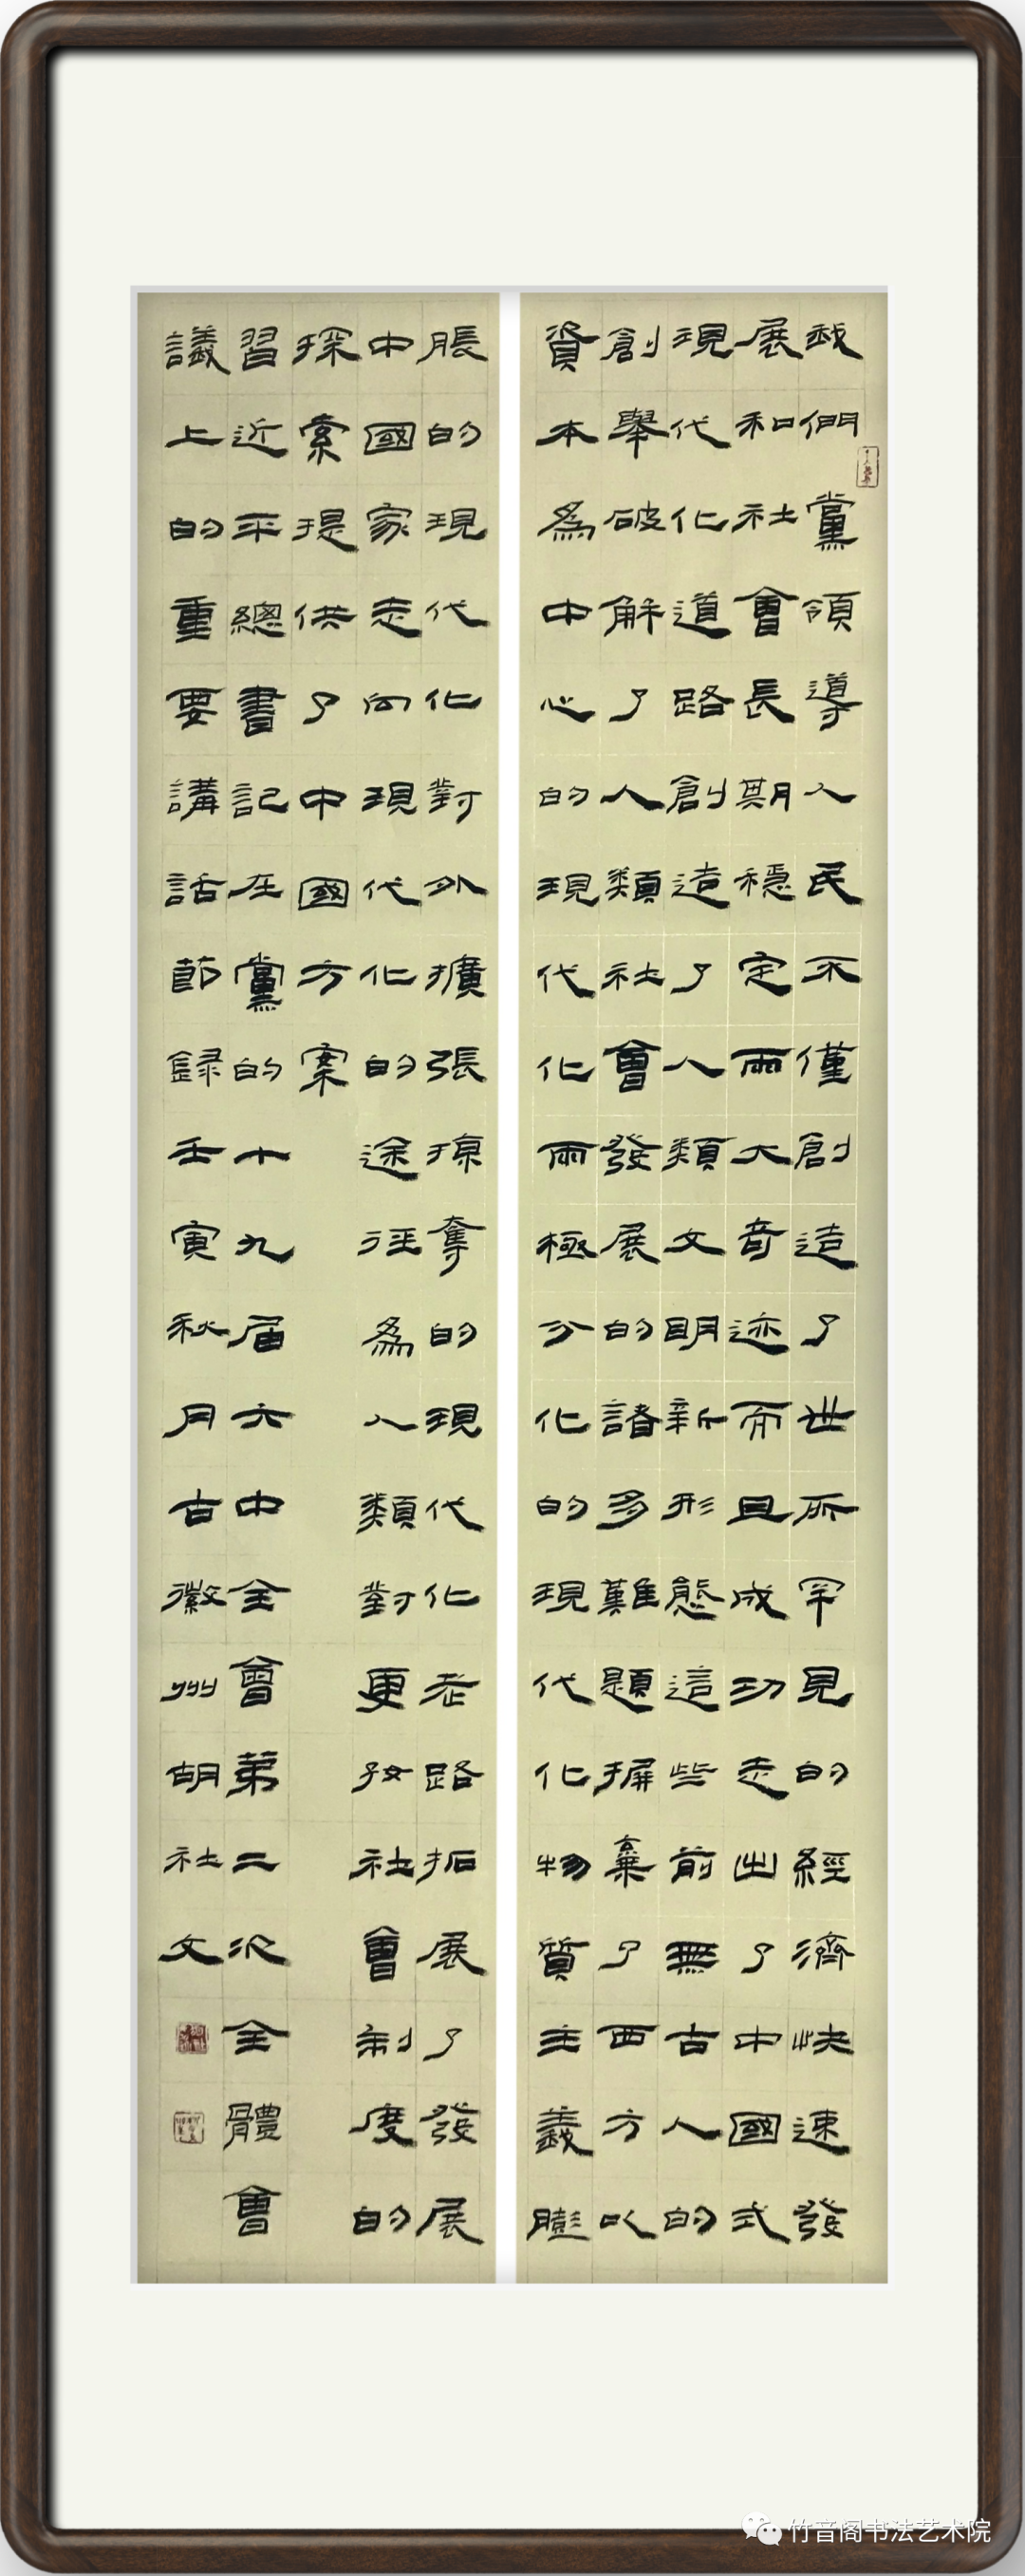 我們黨領導人民不僅創造了世所罕見的經濟快速發
展和社會長期穩定兩大奇迹而且成功走出了中國式
現代化道路創造了人類文明新形態這些前無古人的
創舉破解了人類社會發展的諸多難題摒棄了西方以
資本為中心的現代化兩極分化的現代化物質主義膨
脹的現代化對外擴張掠奪的現代化老路拓展了發展
中國家走向現代化的途徑為人類對更好社會制度的
探索提供了中國方案
習近平總書記在黨的十九届六中全會第二次全體會
議上的重要講話節録壬寅秋月古徽州胡社文
竹音阁书法艺术院